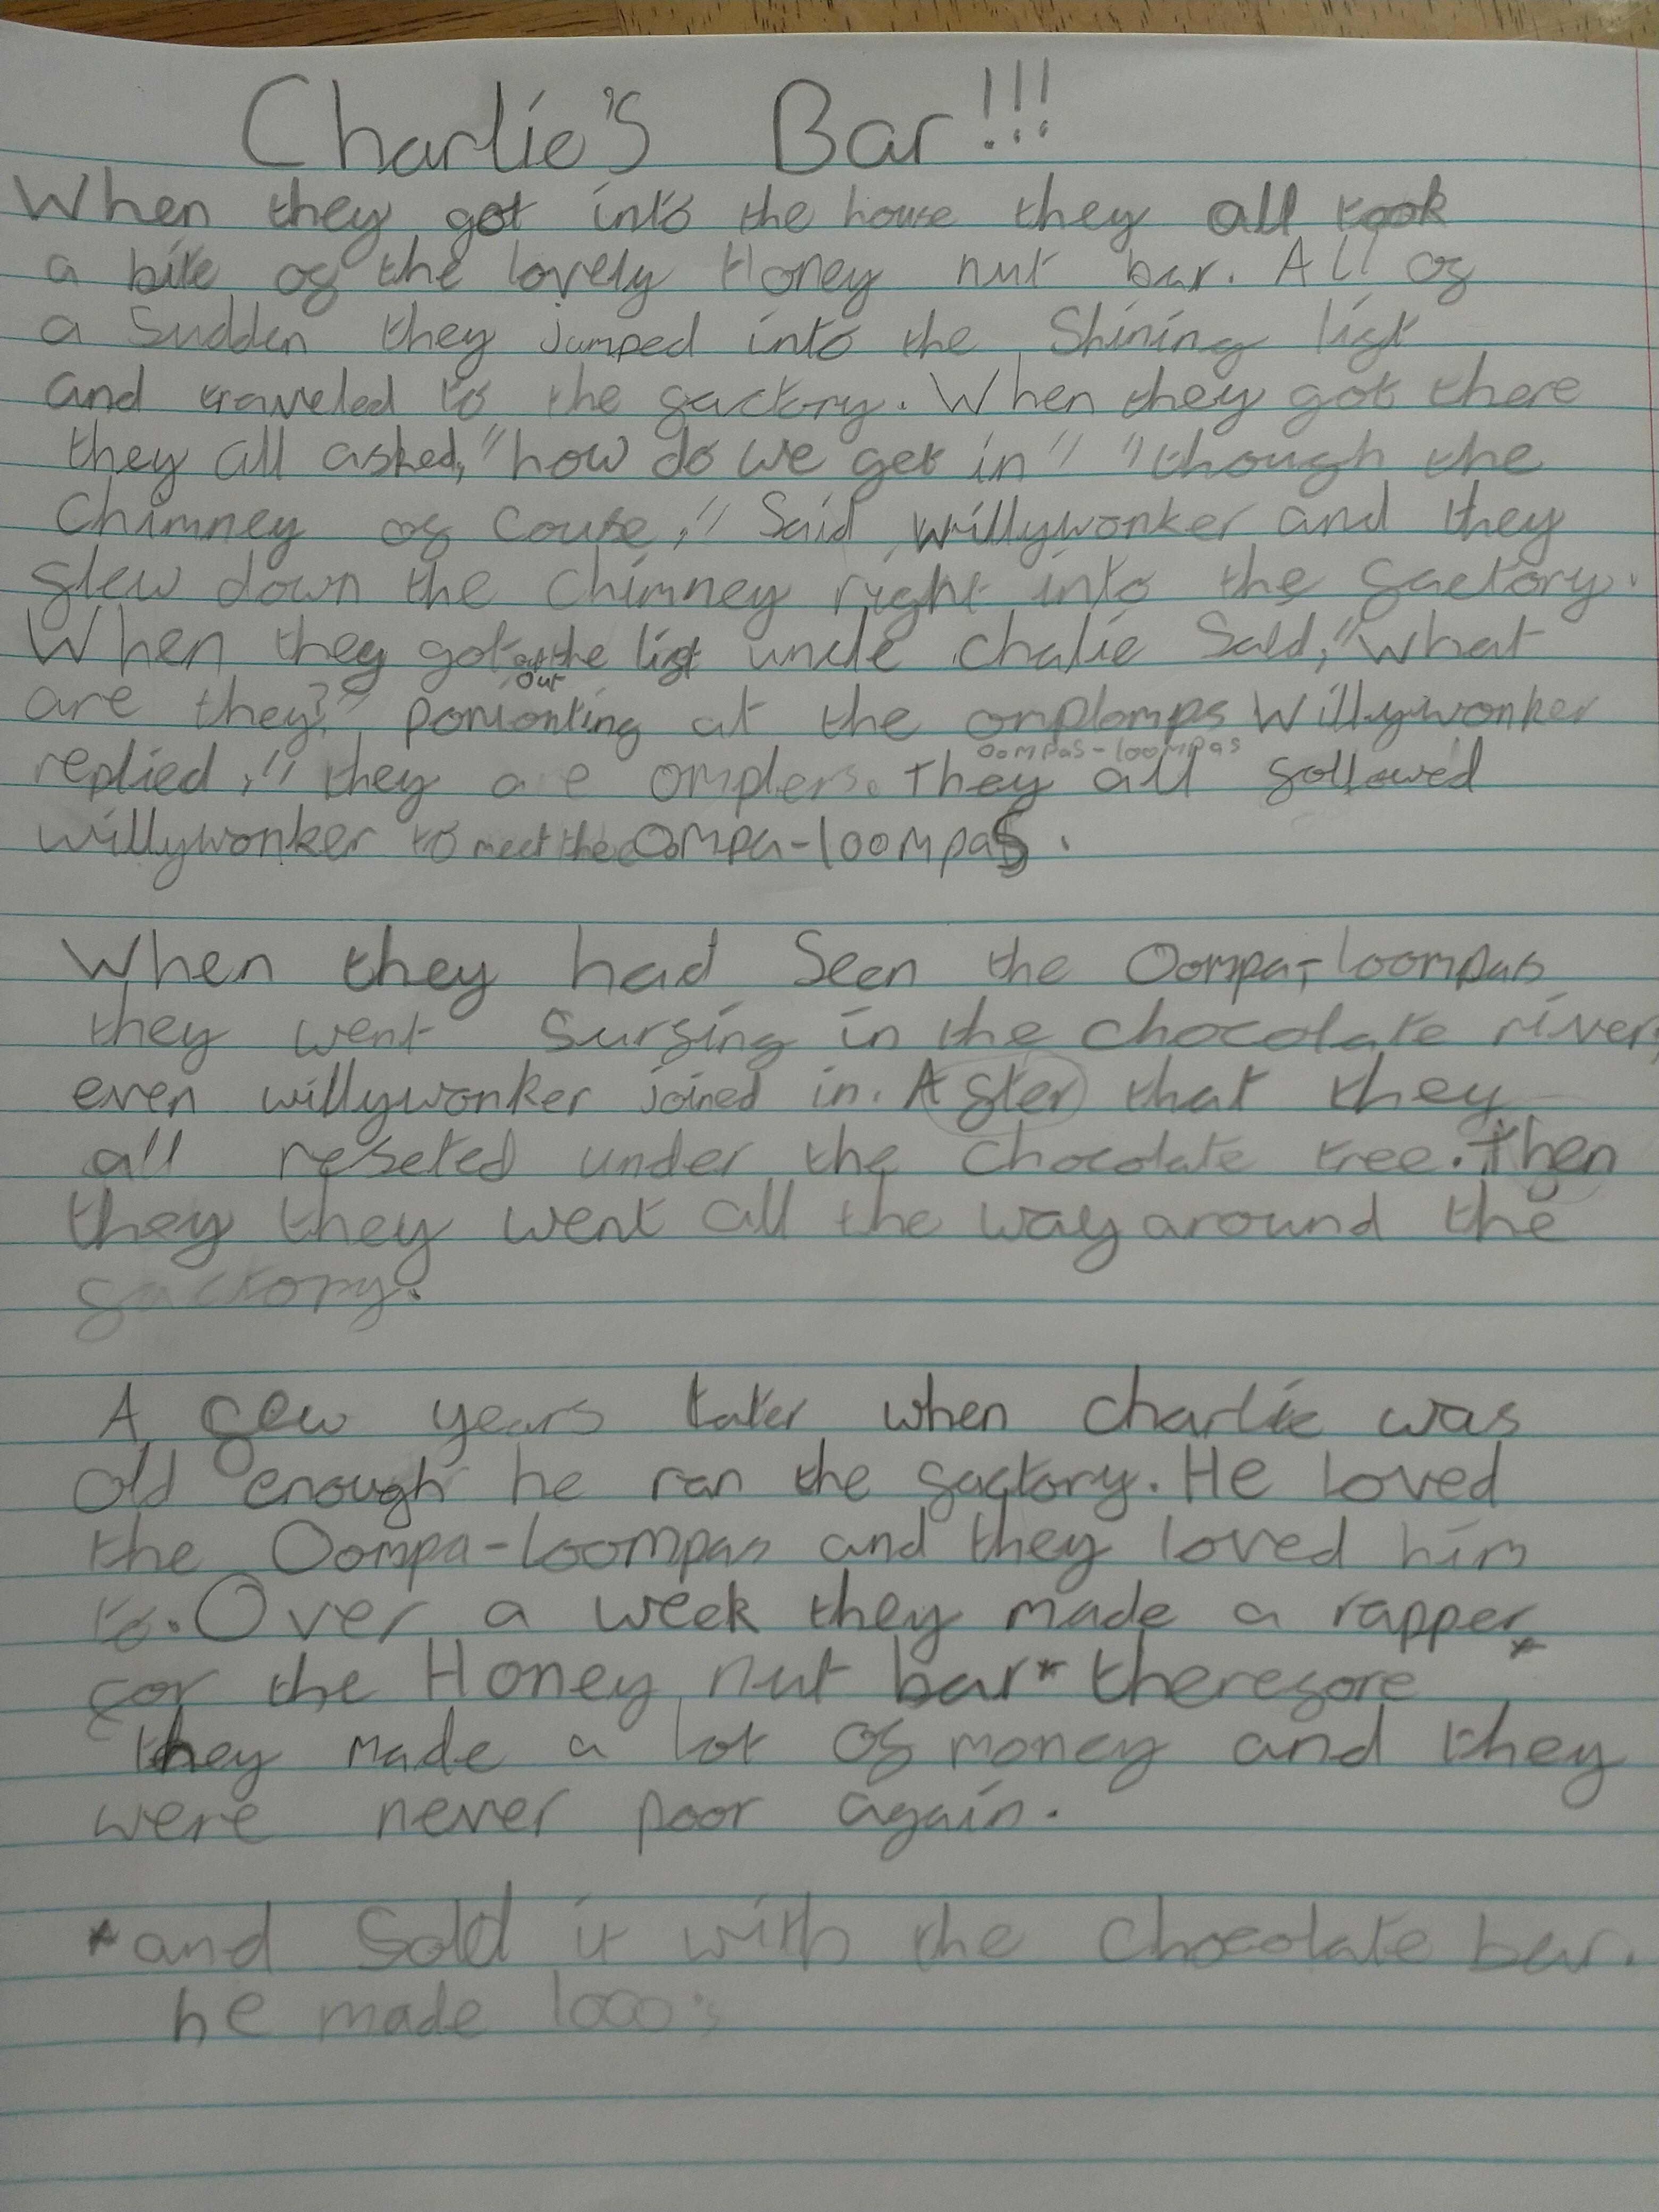 Charlie's Bar!!!
When they got into the house they all took
a bite of the lovely Honey nut bar. All of
a Sudden they jumped into the Shining lift
and traveled to the factory. When they got there
they all asked, "how do we get in" "though the
Chimney of Couse," Said willywonker and they
flew down the chimney right into the factory.
When they got out the lift uncle chalie Said, "what
out
are they?" pomonting at the omplomps Willywonker
oompas-loompas
replied," they are omplers. They all followed
willywonker to meet the Oompa-loompas.
When they had Seen the Oompa-loompas
they went Surfing in the chocolate river,
even willywonker joined in. After that they
all reseted under the chocolate tree. Then
they they went all the way around the
factory.
A few years later when charlie was
old enough he ran the factory. He loved
the Oompa-loompas and they loved him
to. Over a week they made a rapper*
for the Honey nut bar* therefore
they made a lot of money and they
were never poor again.
*and Sold it with the chocolate bar.
he made 1000's